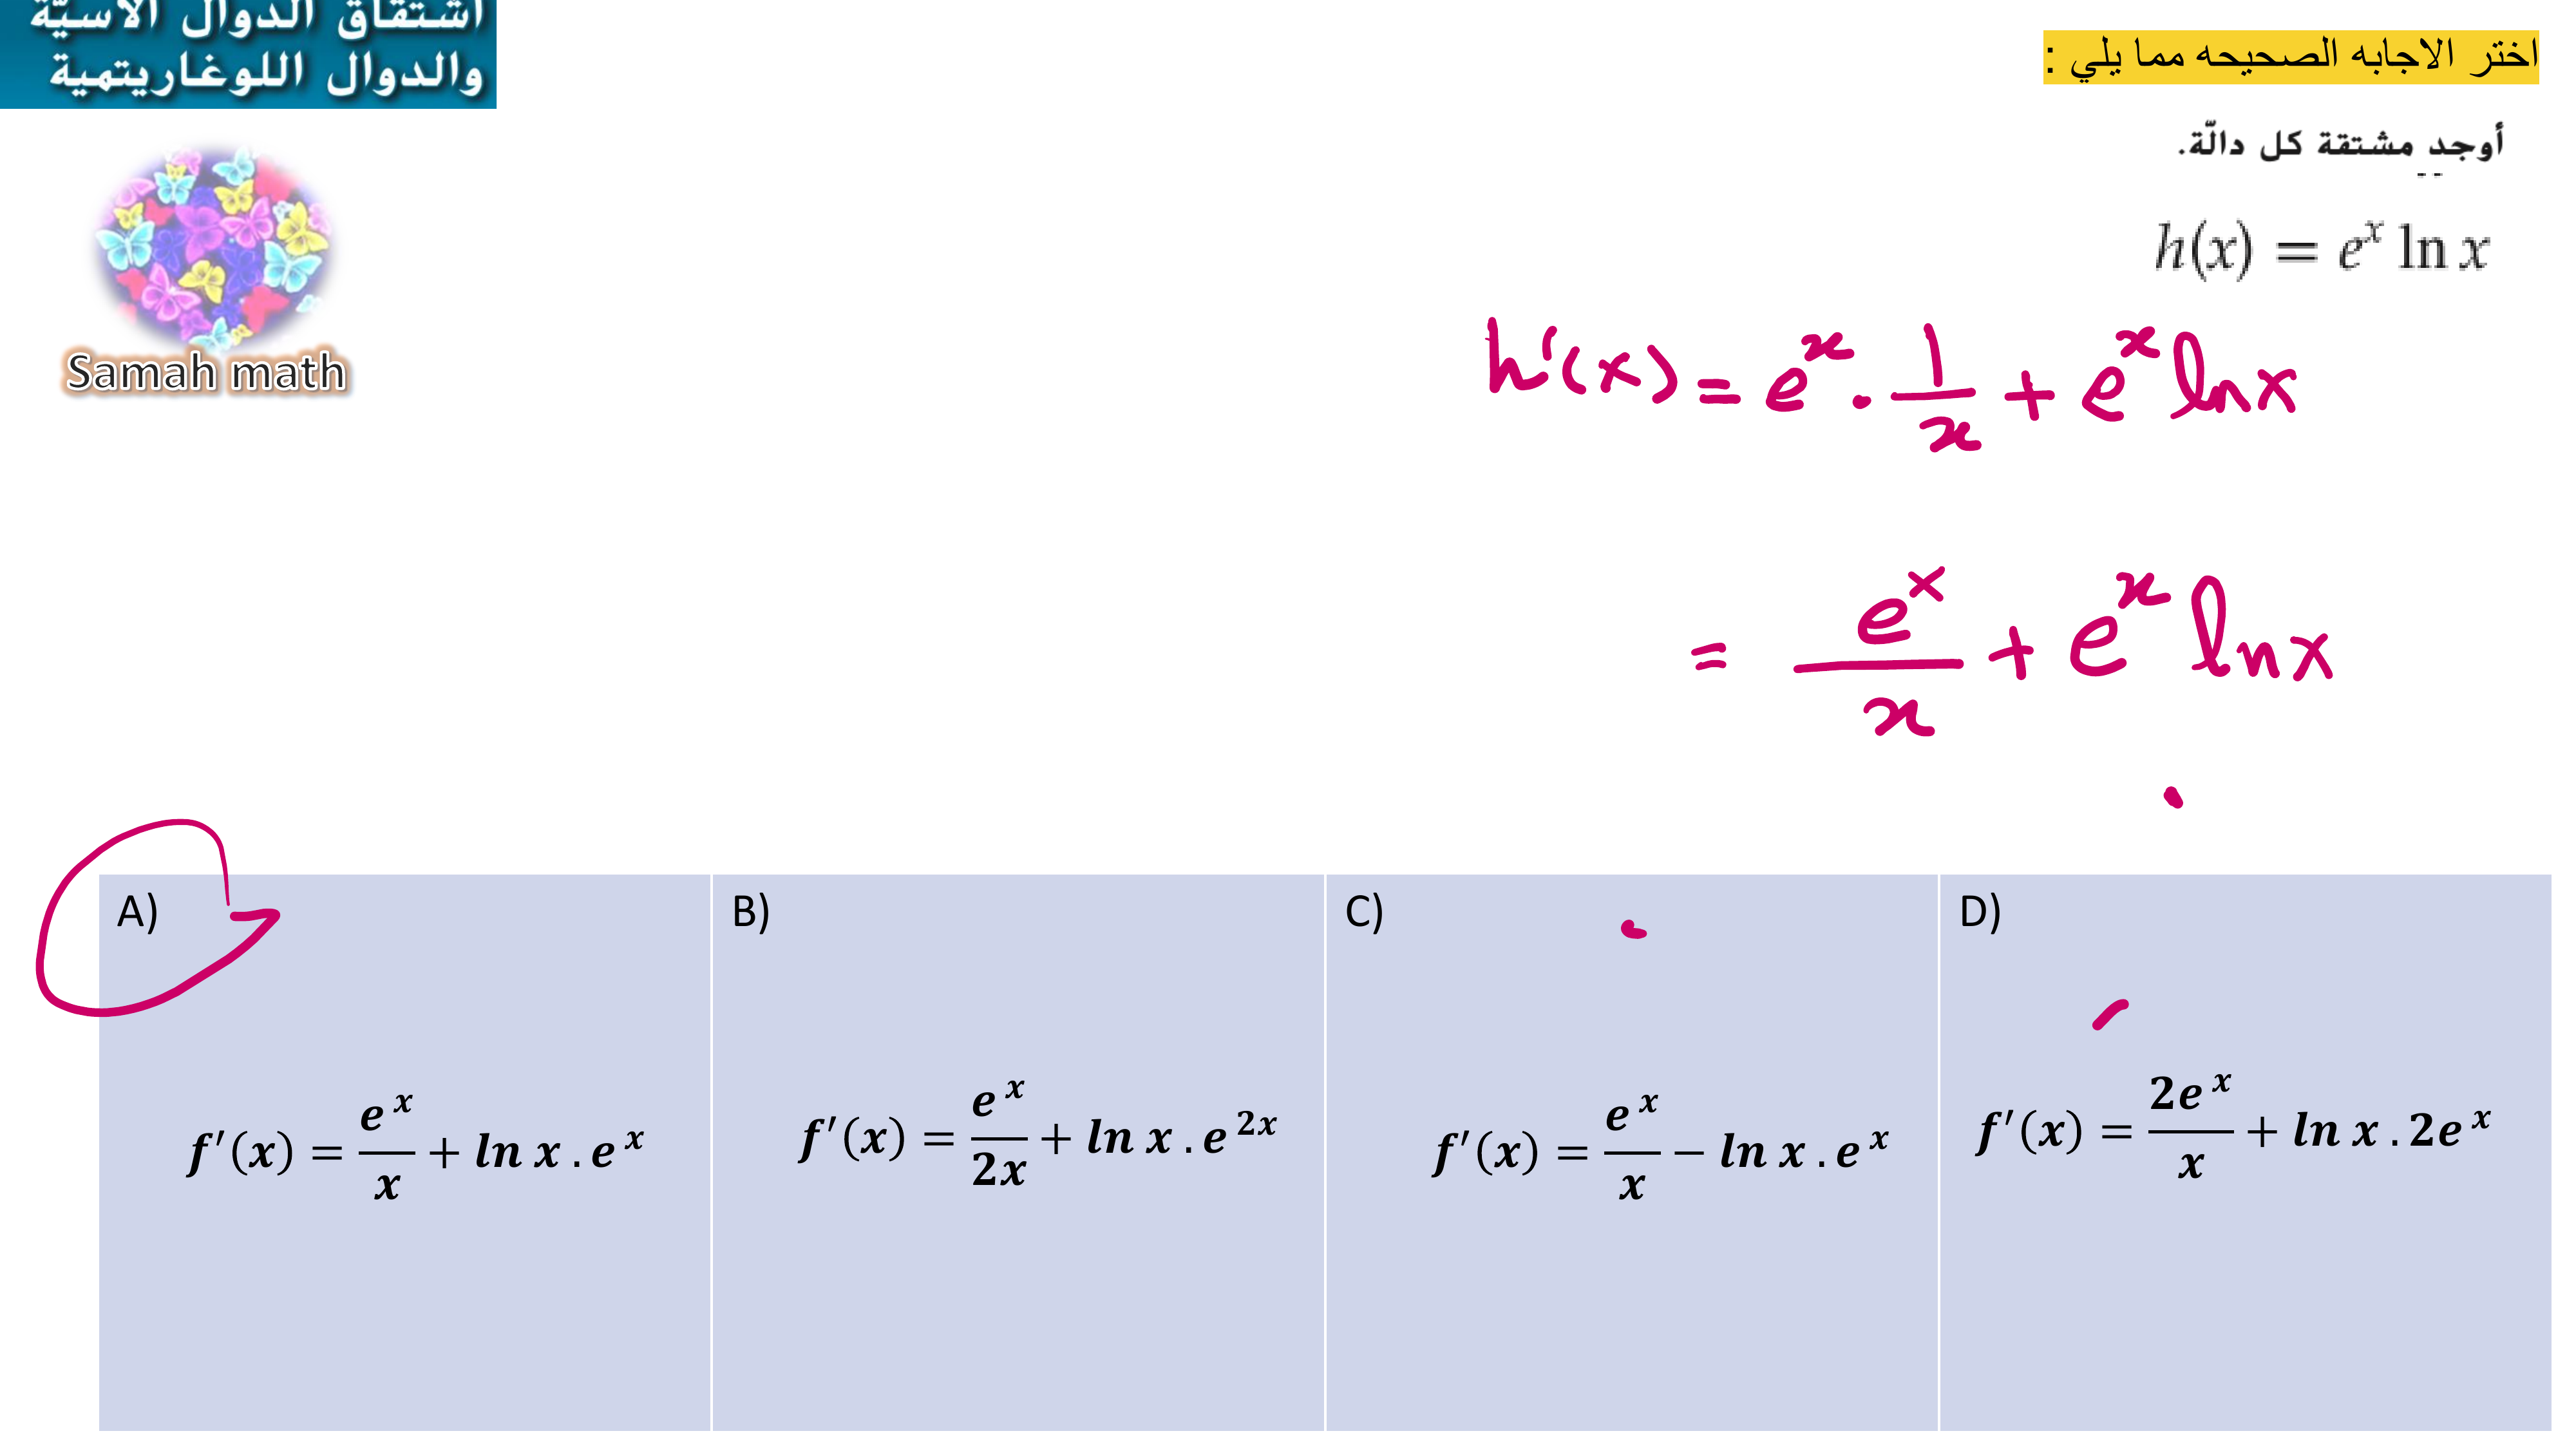 اشتقاق الدوال الأسيّة
والدوال اللوغاريتمية
اختر الاجابه الصحيحه مما يلي :
أوجد مشتقة كل دالّة.
h(x) = eˣ ln x
Samah math
h'(x) = eˣ . 1/x + eˣ ln x
= eˣ/x + eˣ ln x
A)
f′(x) = eˣ/x + ln x . eˣ
B)
f′(x) = eˣ/2x + ln x . e²ˣ
C)
f′(x) = eˣ/x − ln x . eˣ
D)
f′(x) = 2eˣ/x + ln x . 2eˣ